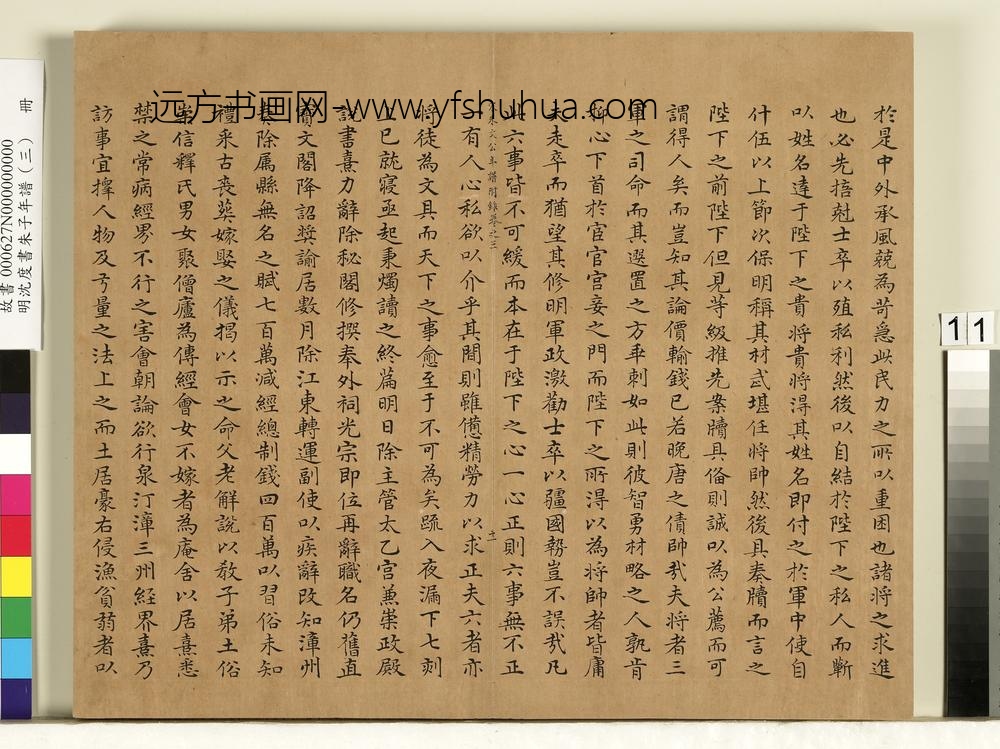 於是中外承風競為苛急此民力之所以重困也諸將之求進
也必先掊尅士卒以殖私利然後以自結於陛下之私人而蘄
以姓名達于陛下之貴將貴將得其姓名即付之於軍中使自
什伍以上節次保明稱其材武堪任將帥然後具奏牘而言之
陛下之前陛下但見等級推先案牘具俻則誠以為公薦而可
謂得人矣而豈知其論價輸錢已若晚唐之債帥哉夫將者三
軍之司命而其選置之方乖剌如此則彼智勇材略之人孰肯
心下首於宦官宮妾之門而陛下之所得以為將帥者皆庸
夫走卒而猶望其修明軍政激勸士卒以疆國勢豈不誤哉凡
此六事皆不可緩而本在于陛下之心一心正則六事無不正
朱文公年譜附錄卷之三
十一
有人心私欲以介乎其間則雖憊精勞力以求正夫六者亦
將徒為文具而天下之事愈至于不可為矣疏入夜漏下七刻
上已就寢亟起秉燭讀之終篇明日除主管太乙宮兼崇政殿
說書熹力辭除秘閣修撰奉外祠光宗即位再辭職名仍舊直
寶文閣降詔奬諭居數月除江東轉運副使以疾辭改知漳州
奏除属縣無名之賦七百萬减經總制錢四百萬以習俗未知
禮釆古喪葬嫁娶之儀揭以示之命父老觧說以教子弟土俗
崇信釋氏男女聚僧廬為傳經會女不嫁者為庵舍以居熹悉
禁之常病經界不行之害會朝論欲行泉汀漳三州經界熹乃
訪事宜擇人物及丂量之法上之而土居豪右侵漁貧弱者以
远方书画网-www.yfshuhua.com
故書000627N000000000
明沈度書朱子年譜(三) 冊
11